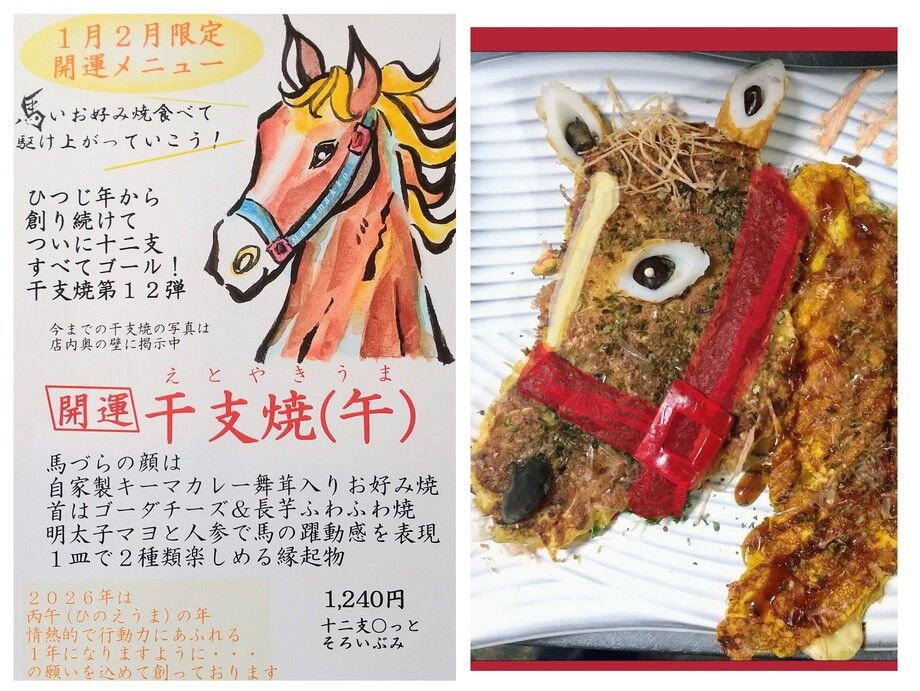 １月２月限定
開運メニュー
馬いお好み焼食べて
駆け上がっていこう！
ひつじ年から
創り続けて
ついに十二支
すべてゴール！
干支焼第１２弾
今までの干支焼の写真は
店内奥の壁に掲示中
えとやきうま
開運 干支焼(午)
馬づらの顔は
自家製キーマカレー舞茸入りお好み焼
首はゴーダチーズ＆長芋ふわふわ焼
明太子マヨと人参で馬の躍動感を表現
１皿で２種類楽しめる縁起物
２０２６年は
丙午(ひのえうま)の年
情熱的で行動力にあふれる
１年になりますように・・・
の願いを込めて創っております
1,240円
十二支〇っと
そろいぶみ